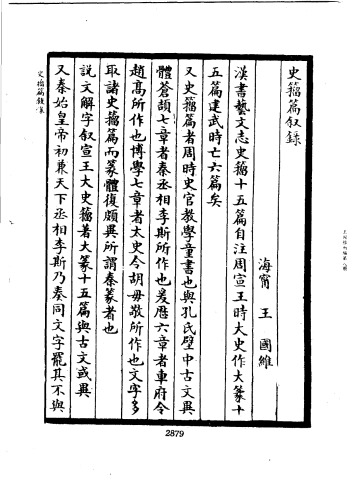 史籀篇叙錄
海甯 王 國維
漢書藝文志史籀十五篇自注周宣王時大史作大篆十
五篇建武時亡六篇矣
又史籀篇者周時史官教學童書也與孔氏壁中古文異
體蒼頡七章者秦丞相李斯所作也爰歷六章者車府令
趙高所作也博學七章者太史令胡毋敬所作也文字多
取諸史籀篇而篆體復頗異所謂秦篆者也
說文解字叙宣王大史籀著大篆十五篇與古文或異
又秦始皇帝初兼天下丞相李斯乃奏同文字罷其不與
史籀篇叙錄
2879